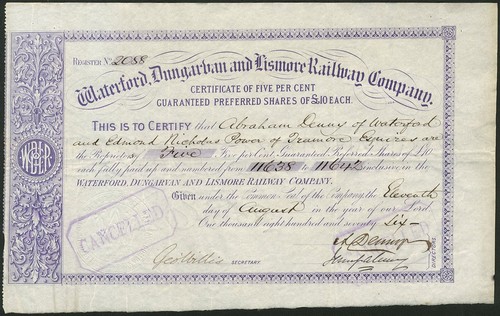 REGISTER No. 2088
Waterford, Dungarvan and Lismore Railway Company.
CERTIFICATE OF FIVE PER CENT
GUARANTEED PREFERRED SHARES OF £10 EACH.
THIS IS TO CERTIFY that Abraham Denny of Waterford
and Edmond Nicholas Power of Tramore Esquires are
the Proprietors of Five Five per Cent Guaranteed Preferred Shares of £10
each fully paid up and numbered from 11638 to 11642 inclusive in the
WATERFORD, DUNGARVAN AND LISMORE RAILWAY COMPANY.
Given under the Common Seal of the Company, the Eleventh
day of August in the year of our Lord
One thousand eight hundred and seventy Six
CANCELLED
A Denny
Geo Willis SECRETARY